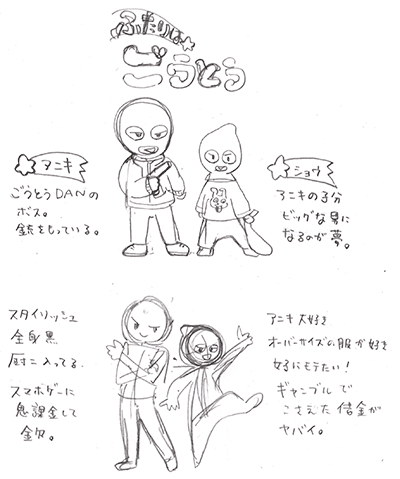 ふたりは
ごうとう
アニキ
ごうとうDANの
ボス。
銃をもっている。
ショウ
アニキの子分
ビッグな男に
なるのが夢。
スタイリッシュ
全身黒
厨二入ってる
スマホゲーに
鬼課金して
金欠。
アニキ大好き
オーバーサイズの服が好き
女子にモテたい!
ギャンブルで
こさえた借金が
ヤバイ。